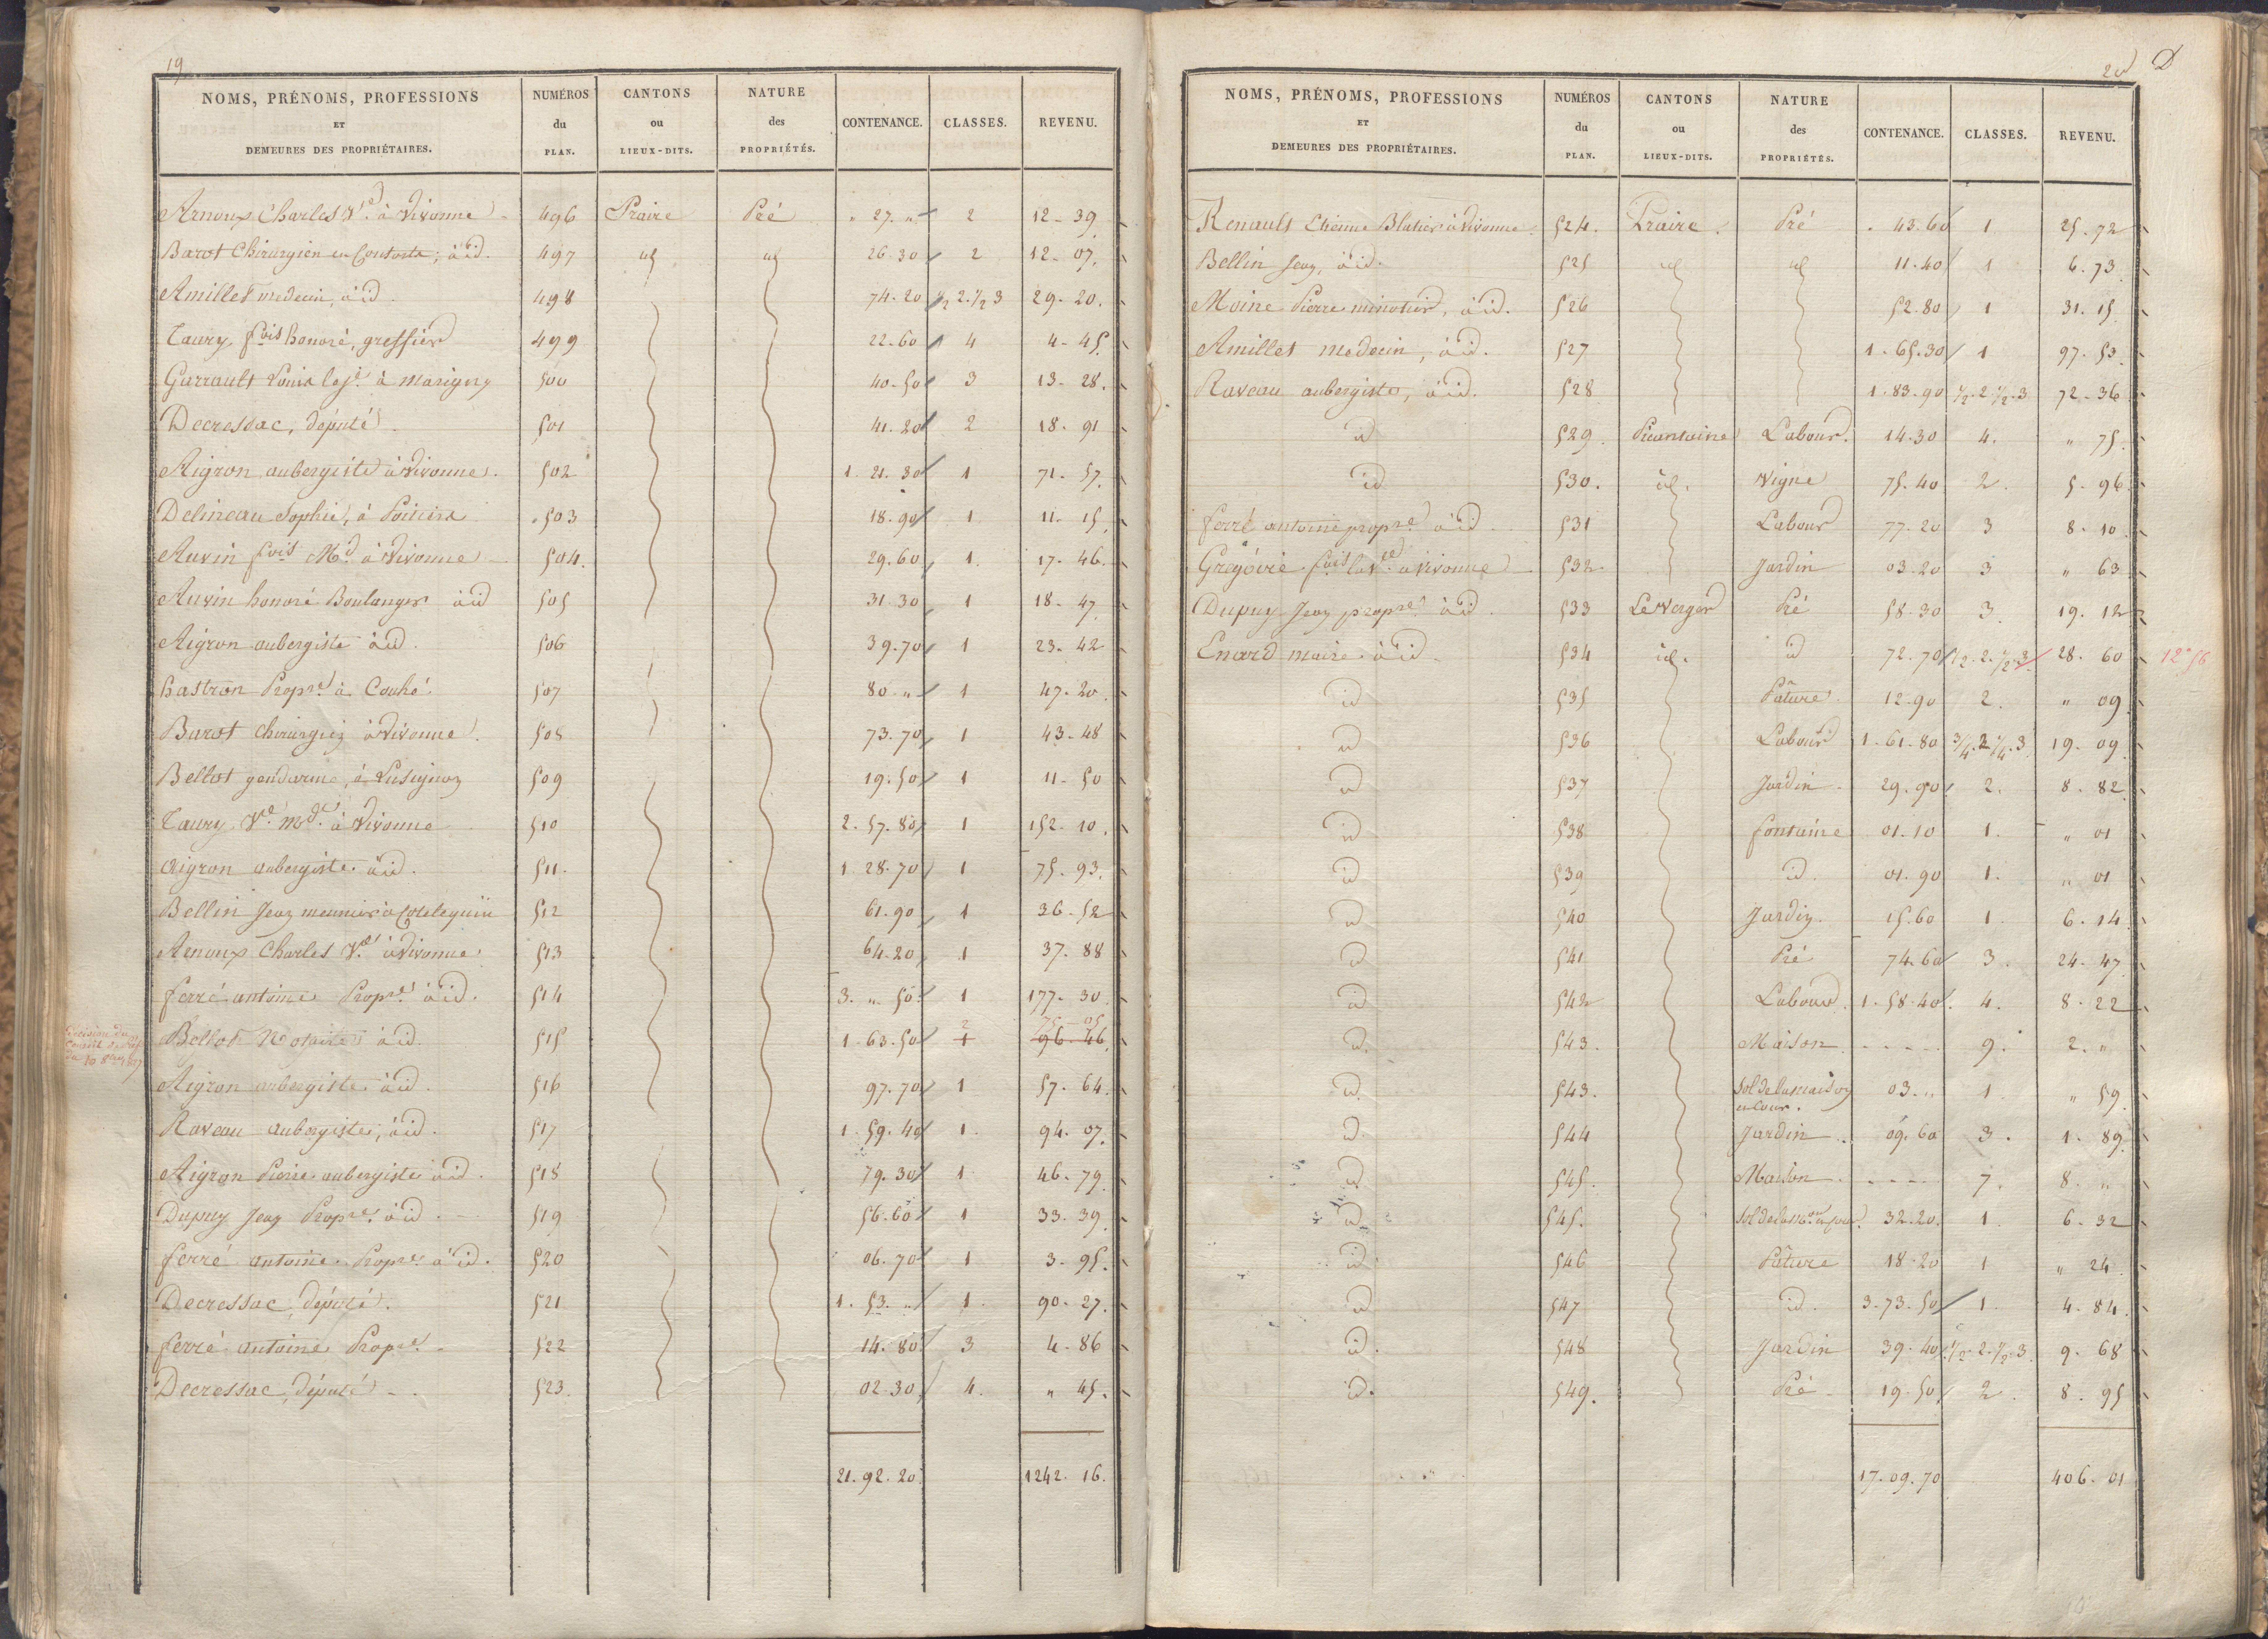 19
NOMS, PRÉNOMS, PROFESSIONS ET DEMEURES DES PROPRIÉTAIRES. NUMÉROS du PLAN. CANTONS ou LIEUX-DITS. NATURE des PROPRIÉTÉS. CONTENANCE. CLASSES. REVENU.
Arnoux Charles Ve. à Vivonne 496 Praire Pré " 27. " 2 12-39
Barot Chirurgien à id. 497 id id 26.30 2 12-07.
Amillet medecin, à id. 498 74-20 1/2 2. 1/2 3 29-20.
Taury, fois honoré, greffier 499 22-60 4 4-45
Garrault Louis à Marigny 500 40-50 3 13-28.
Decressac, député. 501 41.20 2 18-91
Aigron aubergiste à Vivonne. 502 1. 21. 30 1 71-57.
Delineau Sophie, à Poitiers 503 18.90 1 11-15
Auvin fois Md. à Vivonne 504. 29.60 1. 17-46.
Auvin honoré Boulanger à id 505 31.30 1 18-47
Aigron aubergiste à id. 506 39.70 1 23-42
hastron Propre à Couhé. 507 80 " 1 47-20
Barot chirurgien à Vivonne. 508 73.70 1 43-48
Bellot gendarme, à Lusignan 509 19.50 1 11-50
Taury Ve. mde. à Vivonne 510 2-57.80 1 152-10.
Aigron aubergiste à id. 511. 1.28.70 1 75.93.
Bellin Jean meunier à 512 61.90 1 36-52
Arnoux Charles Ve. à Vivonne 513 64.20 1 37-88
ferré antoine Propre. à id. 514 3. " 50 1 177-30
Bellot Notaire à id. 515 1.63.50 1 2 96-46 75-05
Aigron aubergiste à id. 516 97.70 1 57-64.
Raveau aubergiste, à id. 517 1.59.40 1. 94.07.
Aigron Pierre aubergiste à id. 518 79.30 1 46-79
Dupuy Jean Propre. à id. 519 56.60 1 33-39
ferré antoine Propre à id. 520 06.70 1 3-95.
Decressac, député. 521 1. 53. " 1. 90-27.
ferré antoine Propre. 522 14.80 3 4-86
Decressac, député 523. 02.30 4. " 45.
21.92.20. 1242-16.
20 D
NOMS, PRÉNOMS, PROFESSIONS ET DEMEURES DES PROPRIÉTAIRES. NUMÉROS du PLAN. CANTONS ou LIEUX-DITS. NATURE des PROPRIÉTÉS. CONTENANCE. CLASSES. REVENU.
Renault Etienne Blutier à Vivonne 524. Praire. Pré 43.60 1 25.72
Bellin Jean, à id. 525 id id 11.40 1 6.73
Moine Pierre minotier, à id. 526 52.80 1 31.15
Amillet medecin, à id. 527 1-65.30 1 97-53
Raveau aubergiste, à id. 528 1.83.90 1/2.2 1/2.3 72-36
id 529. Picantaine Labour. 14.30 4. " 75.
id 530. id. Vigne 75.40 2. 5-96
ferré antoine propre à id. 531 Labour 77.20 3 8-10
Grégoire fois la Ve à Vivonne 532. Jardin 03.20 3 " 63
Dupuy Jean propre à id. 533 Le Verger Pré 58-30 3. 19.12
Enard maire à id. 534 id. id 72.70 1/2.2.1/2.3 28.60 12.56
id 535 Pâture. 12.90 2. " 09
id 536 Labour 1-61-80 3/4.2 1/4.3 19.09
id 537 Jardin 29.90 2. 8.82
id 538 fontaine 01.10 1. " 01
id 539 id. 01.90 1. " 01
id 540 Jardin. 15.60 1 6.14
id 541 Pré 74.60 3. 24-47
id 542 Labour. 1-58-40. 4. 8-22
id. 543. Maison. ----- 9. 2. "
id. 543. Sol de la maison et cour. 03. " 1. " 59
id. 544 Jardin. 09.60 3. 1.89
id. 545. Maison. ---- 7. 8. "
id 545. Sol de la mon et cour. 32.20. 1. 6-32
id. 546 Pâture 18-20 1 " 24
id 547 id. 3-73.50 1 4.84.
id. 548 Jardin 39-40 1/2.2.1/2.3. 9.68
id. 549. Pré 19-50 2. 8.95
17-09.70 406-01